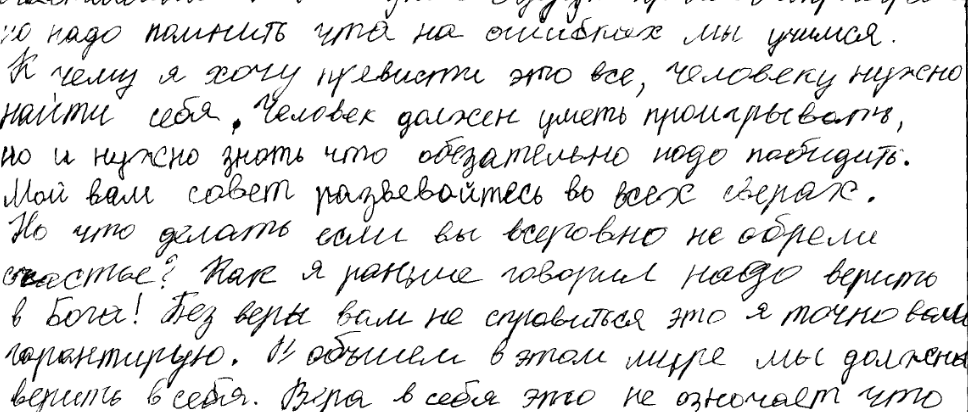 но надо помнить что на ошибках мы учимся.
К чему я хочу превисти это все, человеку нужно
найти себя. Человек должен уметь проигрывать,
но и нужно знать что обезательно надо побидить.
Мой вам совет развевайтесь во всех сферах.
Но что делать если вы всеровно не обрели
счастье? Как я раньше говорил надо верить
в Бога! Без веры вам не справиться это я точно вам
гарантирую. В объшем в этом мире мы должны
верить в себя. Вера в себя это не означает что